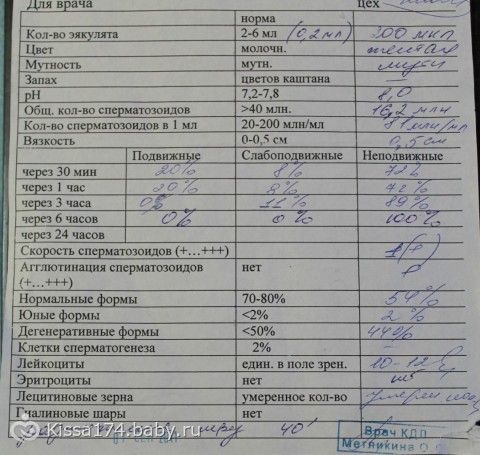 Для врача цех
норма
Кол-во эякулята 2-6 мл (0,2 мл) 300 мкл
Цвет молочн. желтая
Мутность мутн. мутн
Запах цветов каштана —
рН 7,2-7,8 8,0
Общ. кол-во сперматозоидов >40 млн. 16,2 млн
Кол-во сперматозоидов в 1 мл 20-200 млн/мл 81 млн/мл
Вязкость 0-0,5 см 0,5 см
Подвижные Слабоподвижные Неподвижные
через 30 мин 20% 8% 72%
через 1 час 20% 8% 72%
через 3 часа 0% 11% 89%
через 6 часов 0% 0% 100%
через 24 часов
Скорость сперматозоидов (+…+++) 1(+)
Агглютинация сперматозоидов нет
(+…+++)
Нормальные формы 70-80% 54%
Юные формы <2% 2%
Дегенеративные формы <50% 44%
Клетки сперматогенеза 2% —
Лейкоциты един. в поле зрен. 10-12
Эритроциты нет
Лецитиновые зерна умеренное кол-во умерен
Гиалиновые шары нет
через 40'
Врач КДЛ
Метликина О
Kissa174.baby.ru